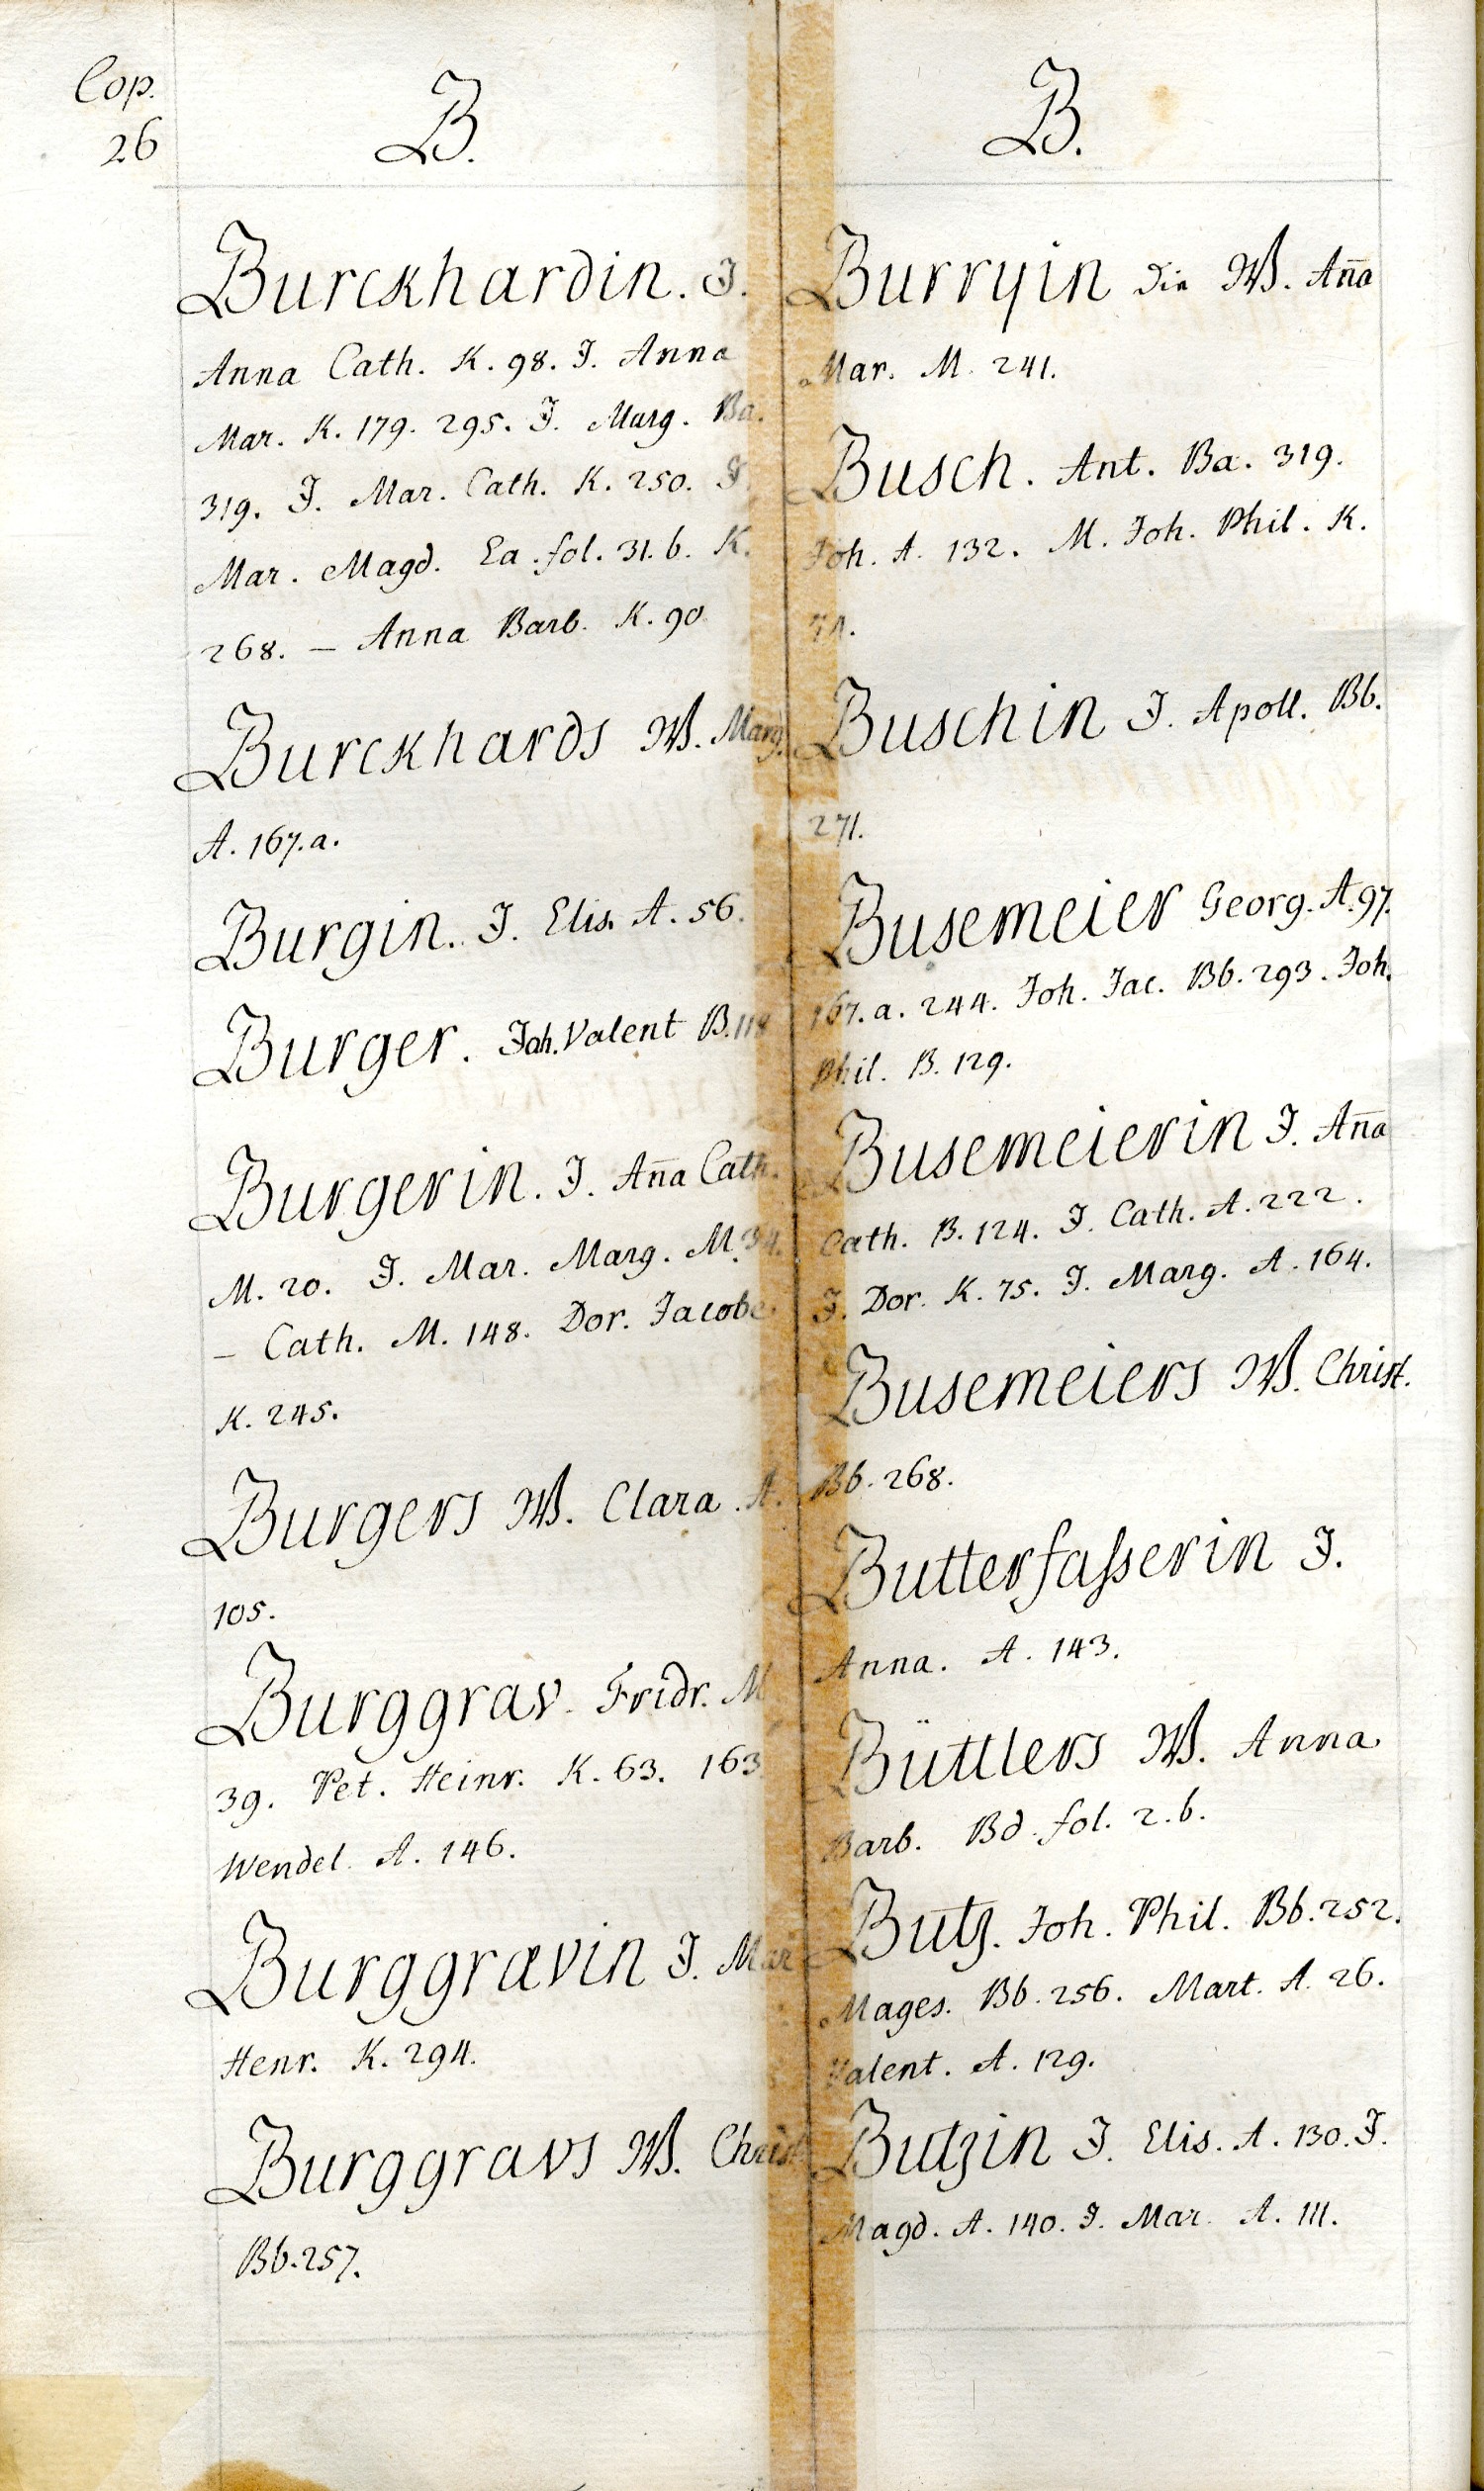 Cop.
26
B.
Burckhardin. J.
Anna Cath. K. 98. J. Anna
Mar. K. 179. 295. J. Marg. Ba.
319. J. Mar. Cath. K. 250. J.
Mar. Magd. Ea. fol. 31. b. K.
268. – Anna Barb. K. 90
Burckhards W. Marg.
A. 167. a.
Burgin. J. Elis. A. 56.
Burger. Joh. Valent B. 118
Burgerin. J. Aña Cath.
M. 20. J. Mar. Marg. M. 34.
– Cath. M. 148. Dor. Jacobe.
K. 245.
Burgers W. Clara. A.
105.
Burggrav. Fridr. M
39. Pet. Heinr. K. 63. 163.
Wendel. A. 146.
Burggrævin J. Mar
Henr. K. 294.
Burggravs W. Christ
Bb. 257.
B.
Burryin die W. Aña
Mar. M. 241.
Busch. Ant. Ba. 319.
Joh. A. 132. M. Joh. Phil. K.
Buschin J. Apoll. Bb.
271.
Busemeier Georg. A. 97.
167. a. 244. Joh. Jac. Bb. 293. Joh.
Phil. B. 129.
Busemeierin J. Aña
Cath. B. 124. J. Cath. A. 222.
J. Dor. K. 75. J. Marg. A. 164.
Busemeiers W. Christ.
Bb. 268.
Butterfaſserin J.
Anna. A. 143.
Büttlers W. Anna
Barb. Bd. fol. 2. b.
Butz. Joh. Phil. Bb. 252.
Mages. Bb. 256. Mart. A. 26.
Valent. A. 129.
Butzin J. Elis. A. 130. J.
Magd. A. 140. J. Mar. A. 111.